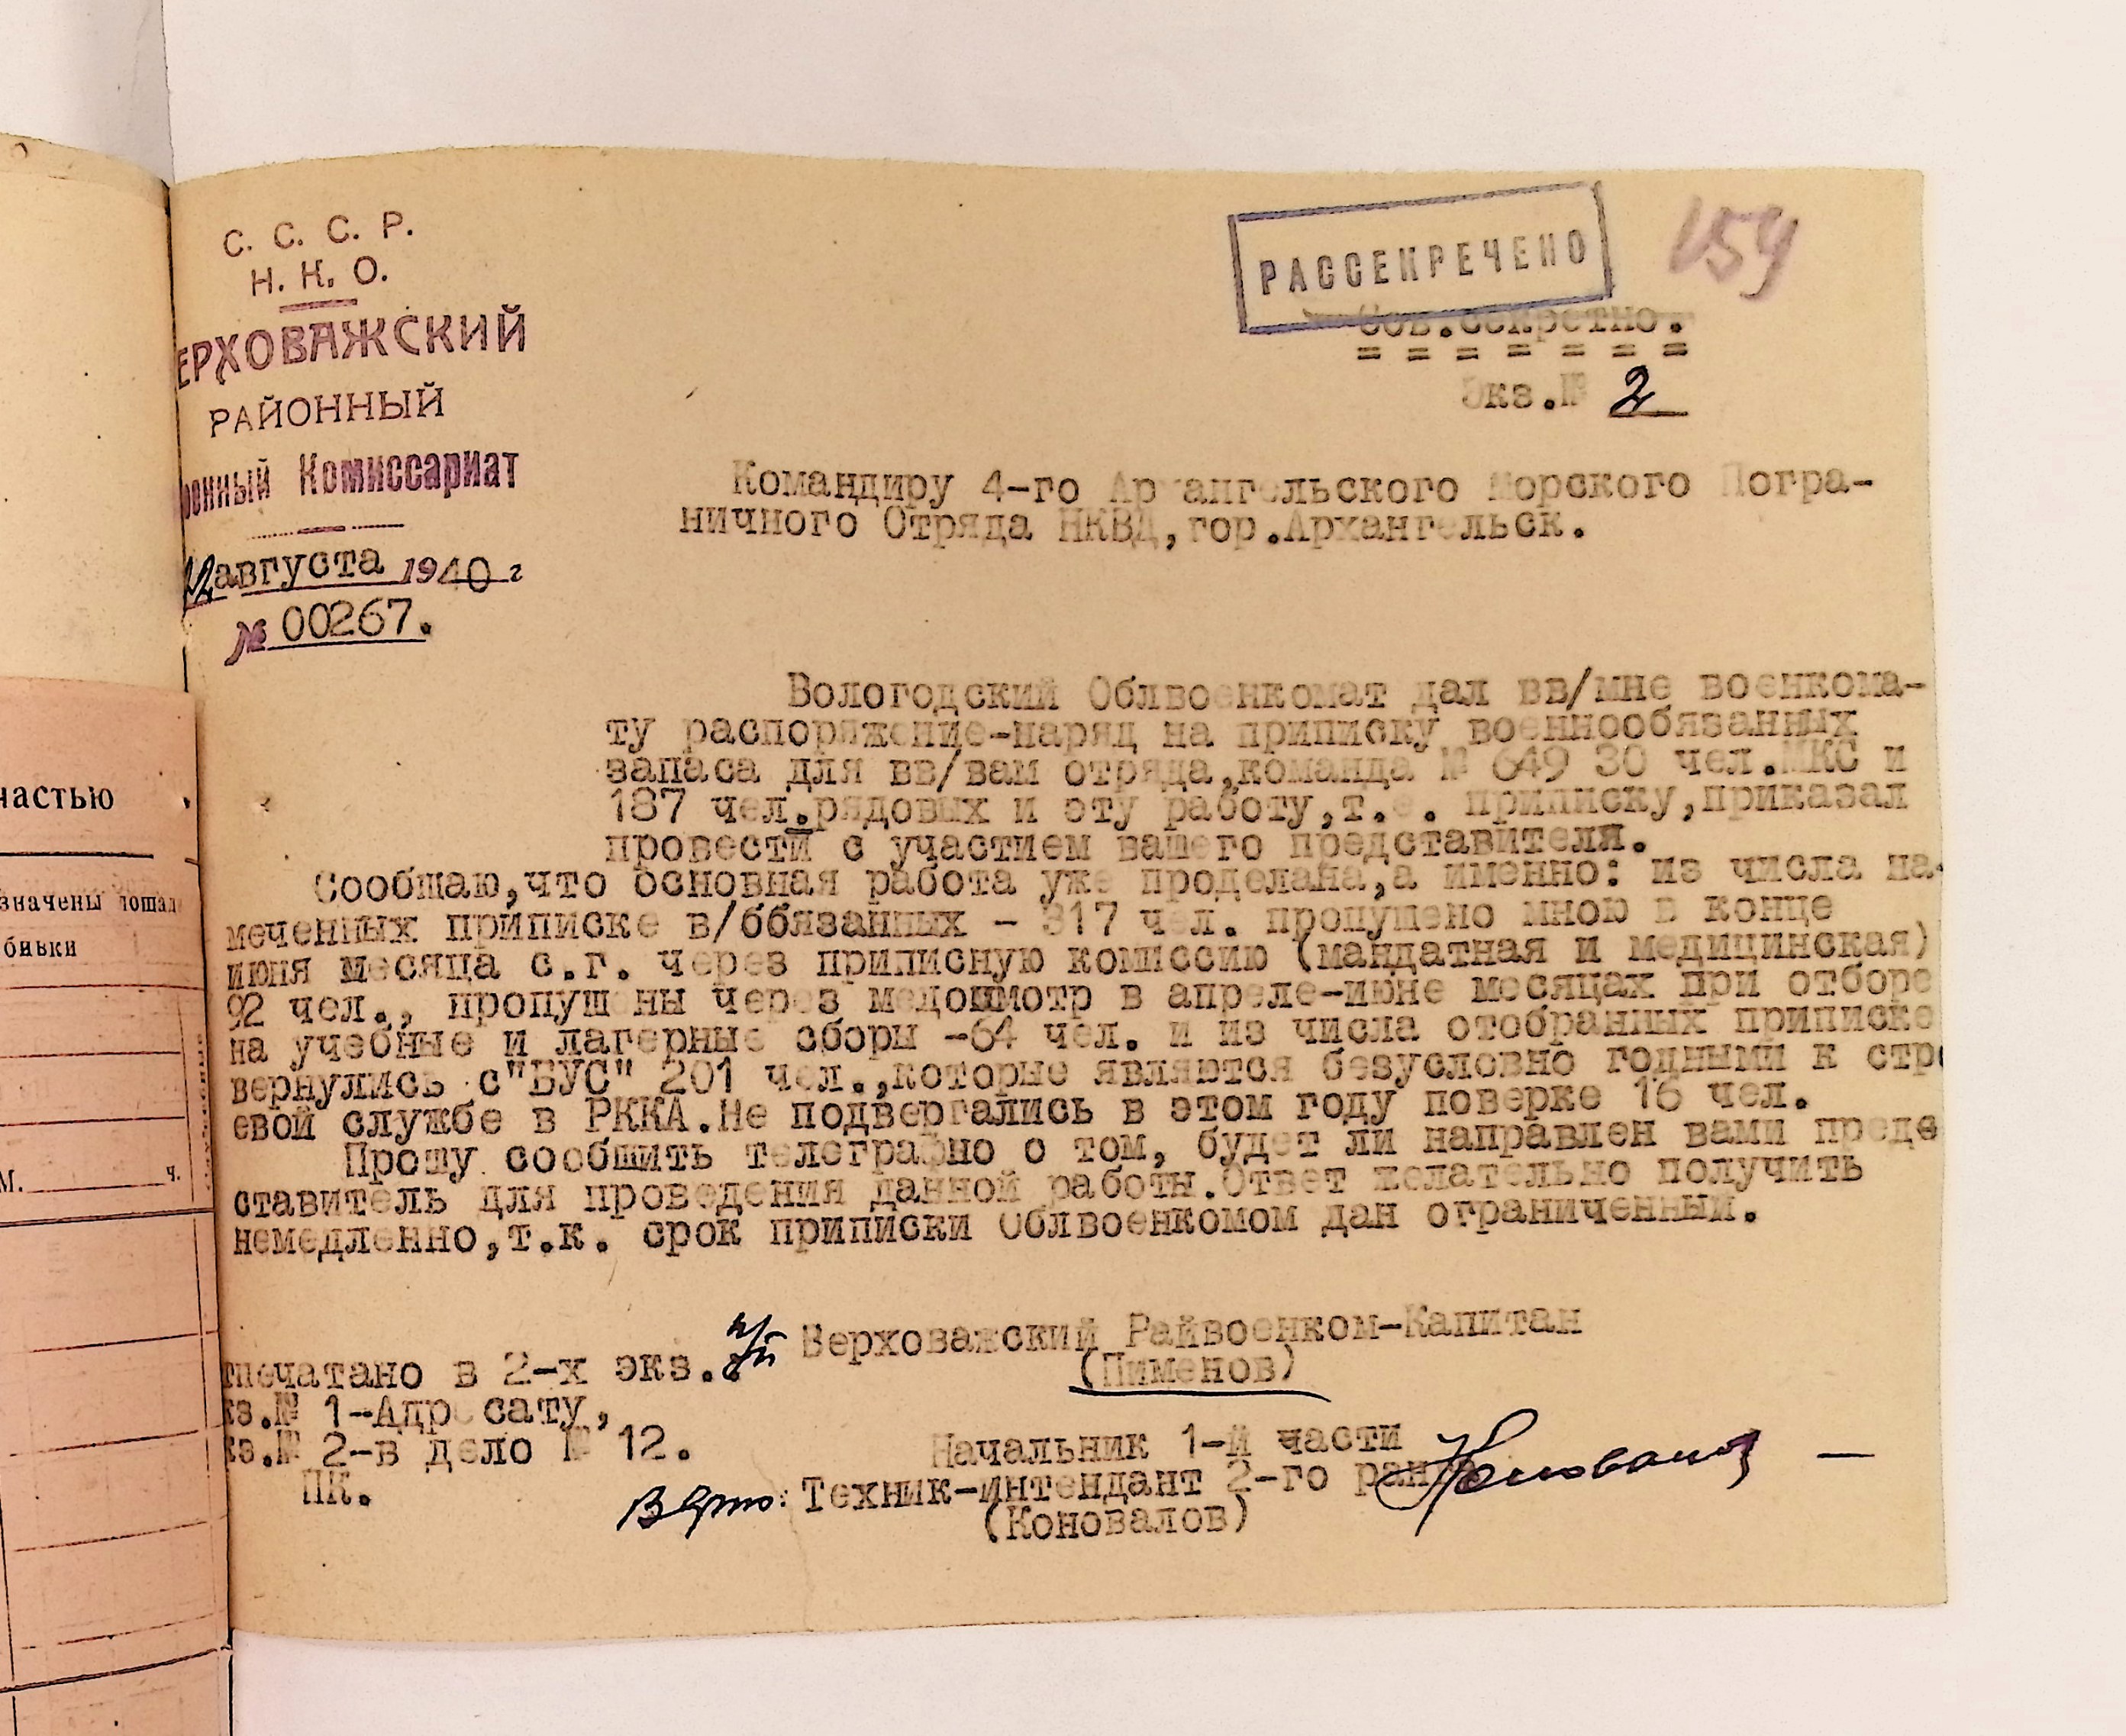 С. С. С. Р.
Н. К. О.
ЕРХОВАЖСКИЙ
РАЙОННЫЙ
оенный Комиссариат
августа 1940 г
№ 00267.
РАССЕКРЕЧЕНО
159
Сов.секретно.
= = = = = = =
Экз.№ 2
Командиру 4-го Архангельского Морского Погра-
ничного Отряда НКВД,гор.Архангельск.
Вологодский Облвоенкомат дал вв/мне военкома-
ту распоряжение-наряд на приписку военнообязанных
запаса для вв/вам отряда,команда № 649 30 чел.МКС и
187 чел.рядовых и эту работу,т.е. приписку,приказал
провести с участием вашего представителя.
Сообщаю,что основная работа уже проделана,а именно: из числа на-
меченных приписке в/ббязанных - 317 чел. пропущено мною в конце
июня месяца с.г. через приписную комиссию (мандатная и медицинская)
92 чел., пропущены через медосмотр в апреле-июне месяцах при отборе
на учебные и лагерные сборы -64 чел. и из числа отобранных приписке
вернулись с"БУС" 201 чел.,которые являются безусловно годными к стро
евой службе в РККА.Не подвергались в этом году поверке 16 чел.
Прошу сообщить телеграфно о том, будет ли направлен вами предс
ставитель для проведения данной работы.Ответ желательно получить
немедленно,т.к. срок приписки Облвоенкомом дан ограниченный.
п/п Верховажский Райвоенком-Капитан
(Пименов)
тпечатано в 2-х экз.
кз.№ 1-Адресату,
кз.№ 2-в дело № 12.
ПК.
Начальник 1-й части
Верно: Техник-интендант 2-го ранга Коновалов
(Коновалов)
частью
значены лошад
бивки
М. ч.